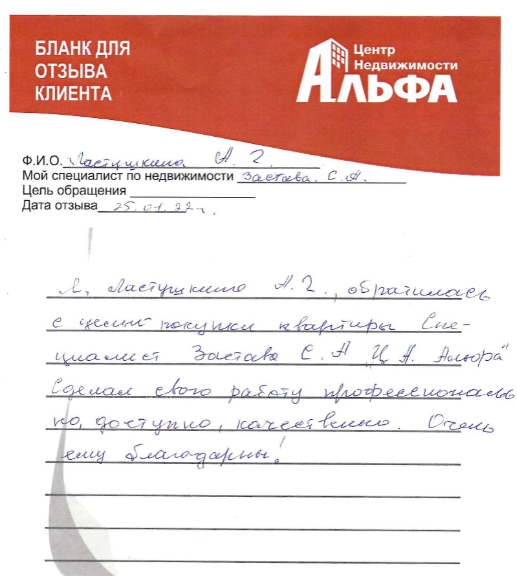 БЛАНК ДЛЯ
ОТЗЫВА
КЛИЕНТА
Центр
Недвижимости
АЛЬФА
Ф.И.О. Ластушкина А. Г.
Мой специалист по недвижимости Застава С. А.
Цель обращения
Дата отзыва 25.01.22г.
Я, Ластушкина А. Г., обратилась
с целью покупки квартиры Спе-
циалист Застава С. А „Ц Н. Альфа"
Сделал свою работу профессиональ
но, доступно, качественно. Очень
ему благодарны!